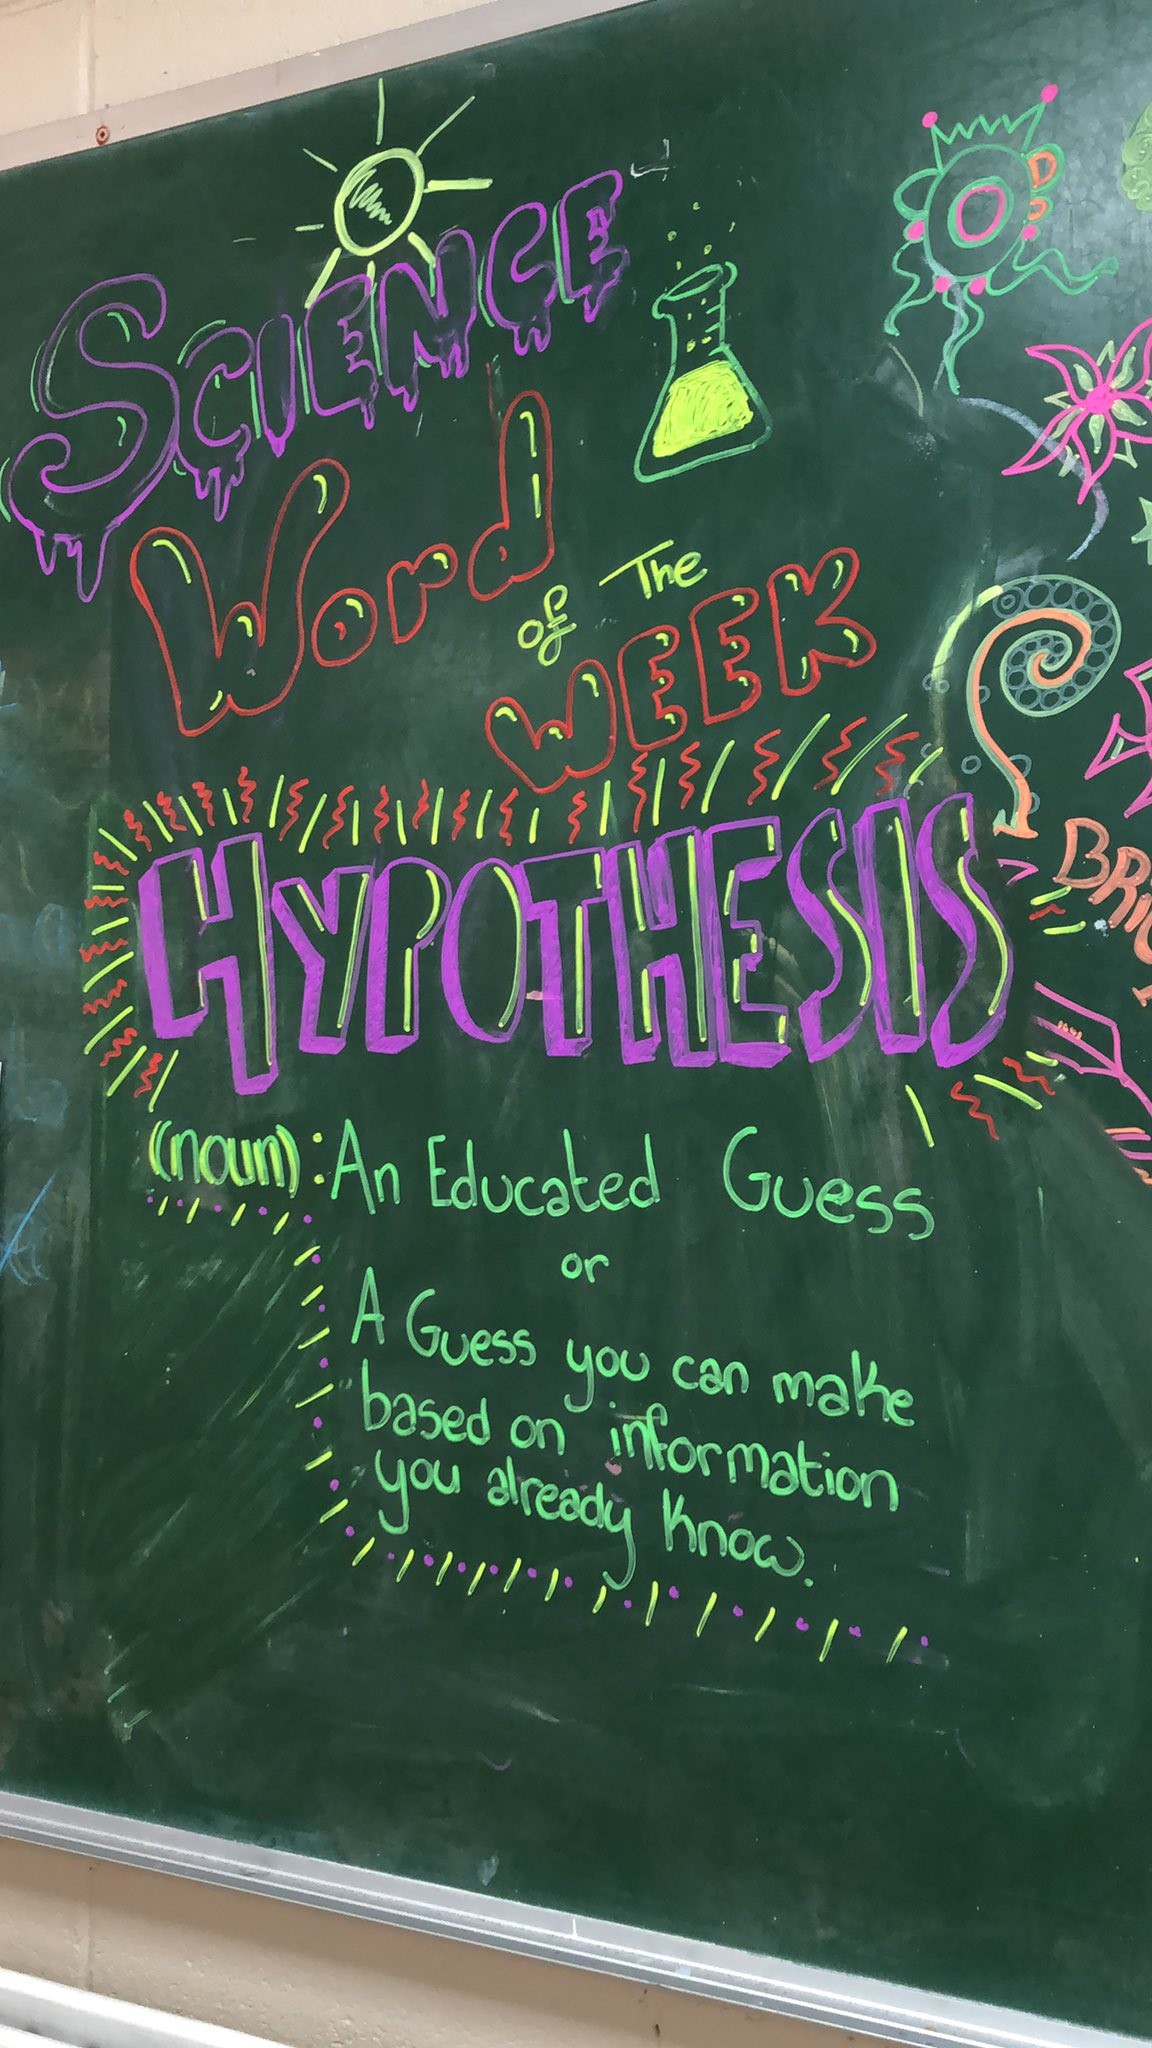 SCIENCE
Word
of The
WEEK
HYPOTHESIS
(noun): An Educated Guess
or
A Guess you can make
based on information
you already know.